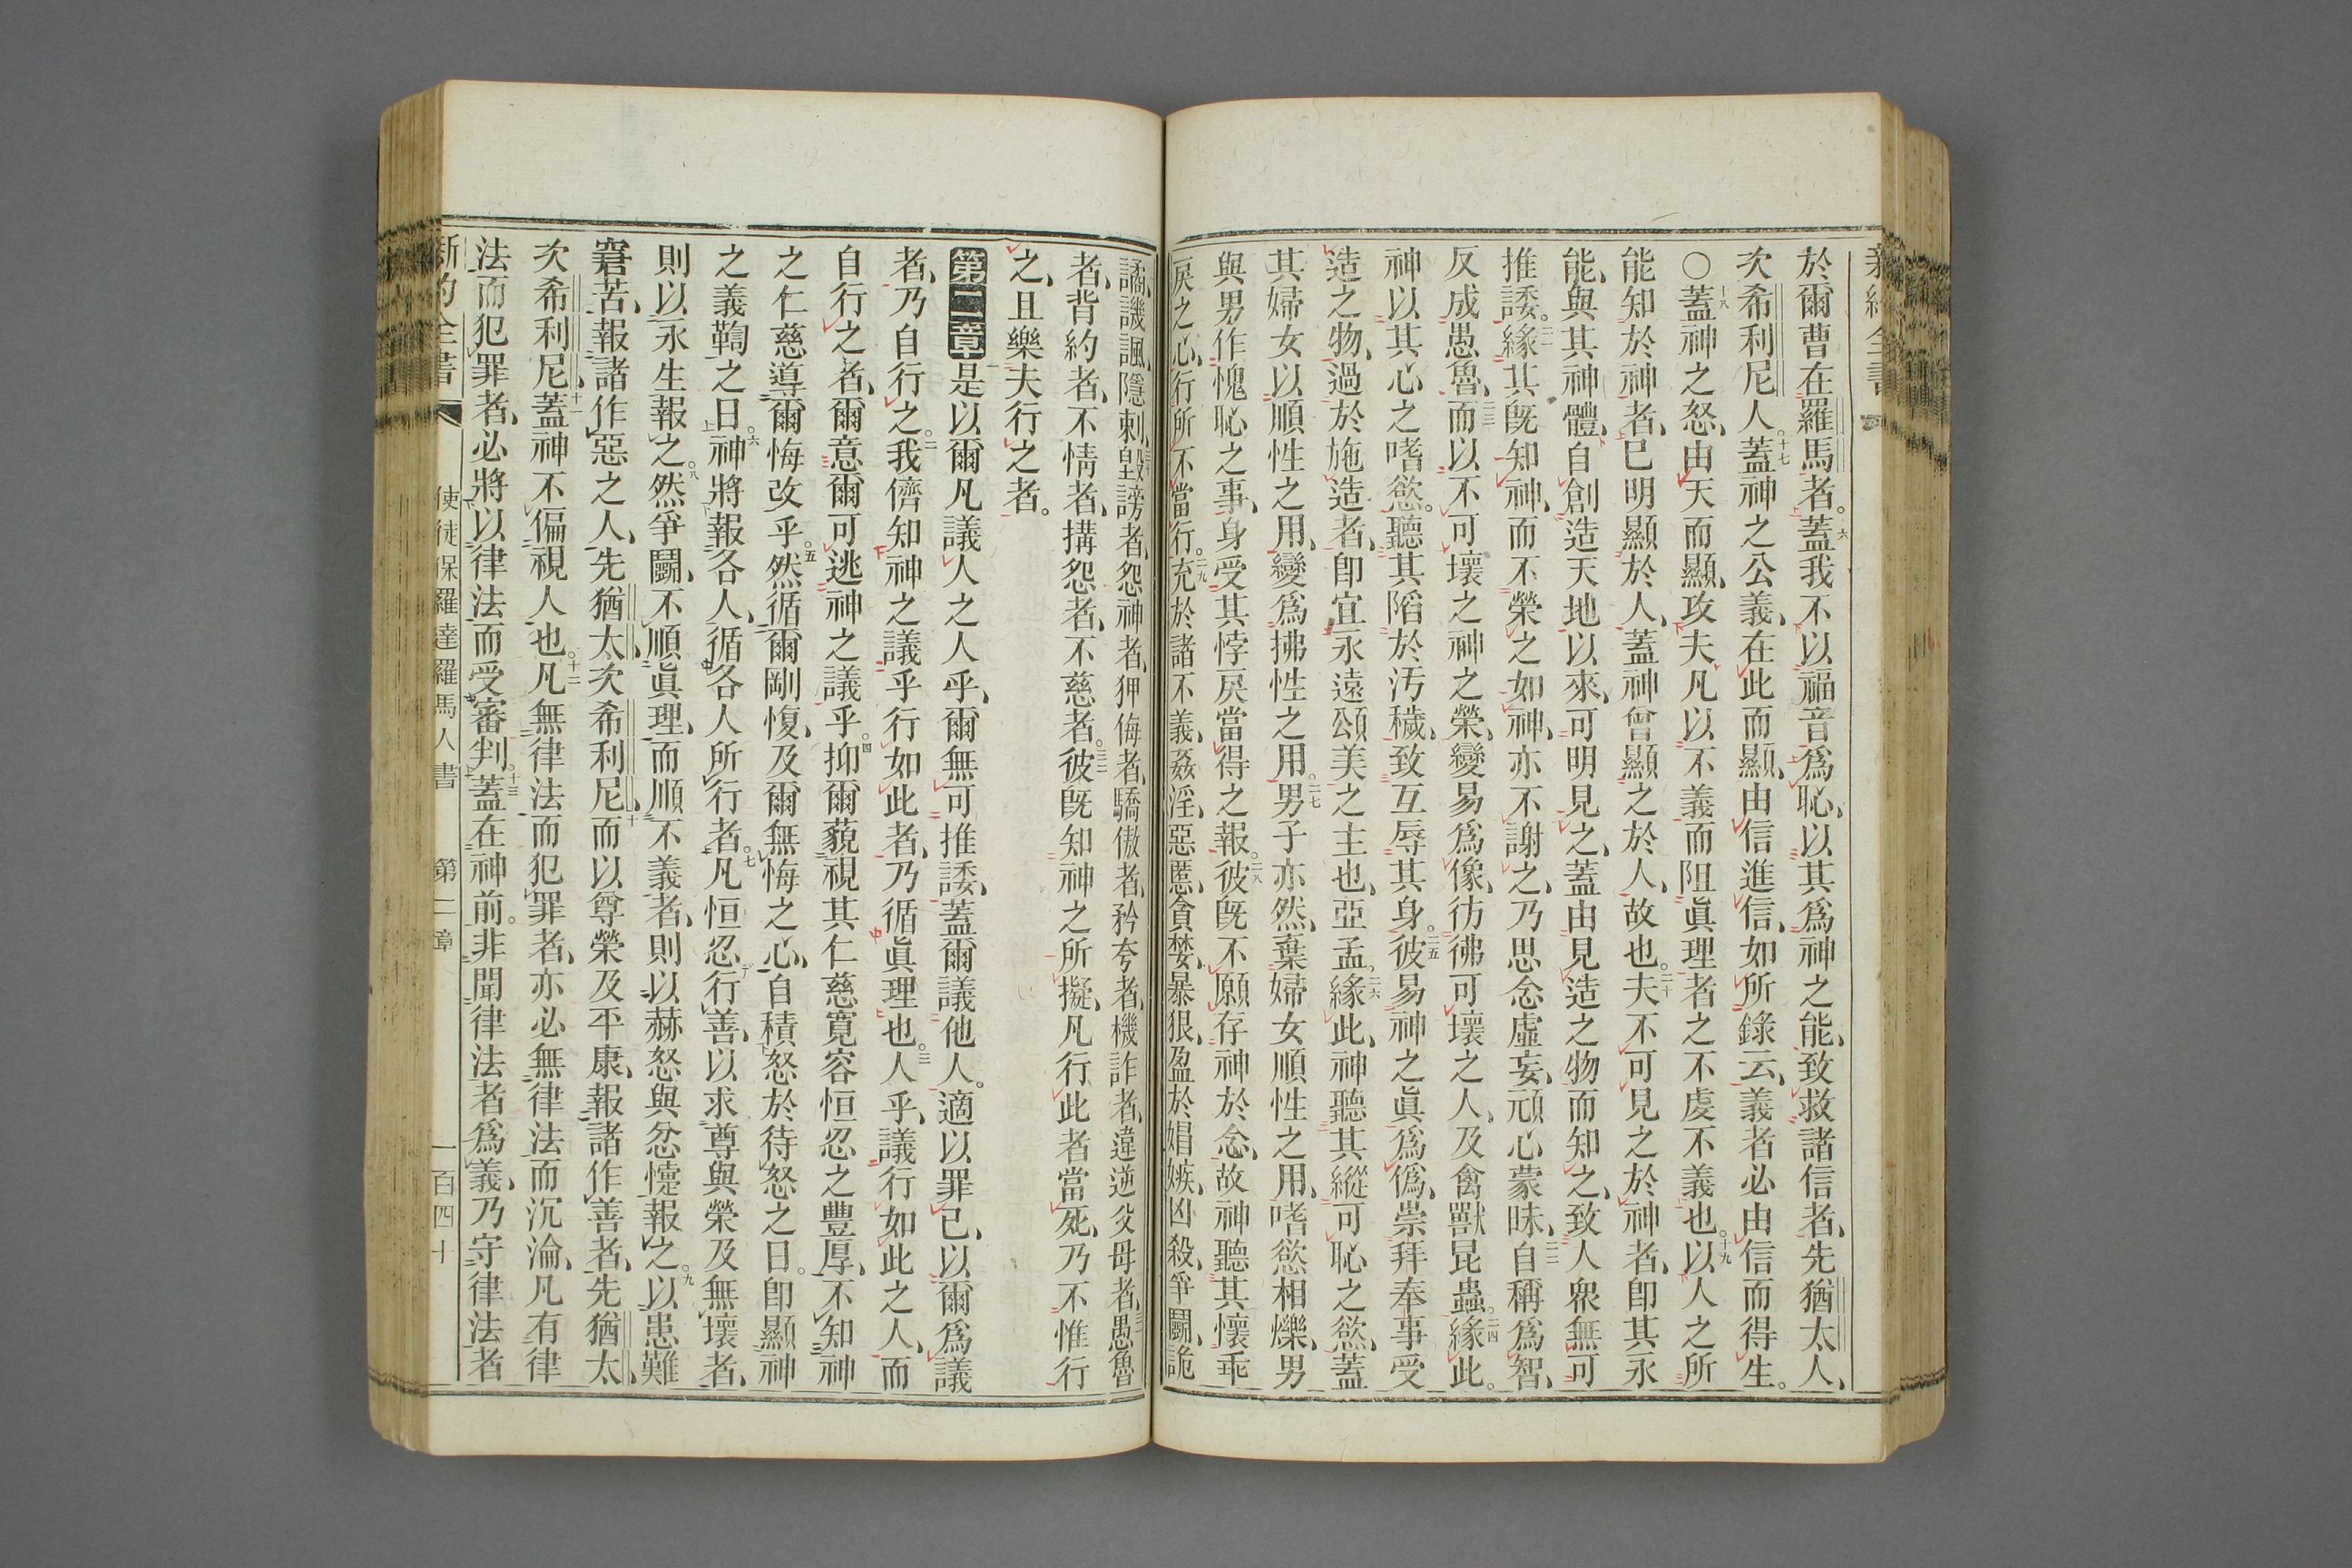 新約全書
於爾曹在羅馬者。十六蓋我不以福音爲恥、以其爲神之能、致救諸信者、先猶太人、
次希利尼人。十七蓋神之公義、在此而顯、由信進信、如所錄云、義者必由信而得生。
○十八蓋神之怒、由天而顯、攻夫凡以不義而阻眞理者之不虔不義也。十九以人之所
能知於神者、已明顯於人、蓋神曾顯之於人、故也。二十夫不可見之於神者、卽其永
能、與其神體、自創造天地以來、可明見之、蓋由見造之物而知之、致人衆無可
推諉。二一緣其旣知神、而不榮之如神、亦不謝之、乃思念虛妄、頑心蒙昧、二二自稱爲智、
反成愚魯、二三而以不可壞之神之榮、變易爲像、彷彿可壞之人、及禽獸昆蟲。二四緣此。
神以其心之嗜慾。聽其陷於汚穢、致互辱其身。二五彼易神之眞爲僞、崇拜奉事受
造之物、過於施造者、卽宜永遠頌美之主也、亞孟。二六緣此、神聽其縱可恥之慾、蓋
其婦女以順性之用、變爲拂性之用。二七男子亦然、棄婦女順性之用、嗜慾相爍、男
與男作愧恥之事、身受其悖戾當得之報。二八彼旣不願存神於念、故神聽其懷乖
戾之心、行所不當行。二九充於諸不義、姦淫、惡慝、貪婪、暴狠、盈於娼嫉、凶殺、爭鬪、詭
譎、譏諷、隱刺、三十毀謗者、怨神者、狎侮者、驕傲者、矜夸者、機詐者、違逆父母者、三一愚魯
者、背約者、不情者、搆怨者、不慈者。三二彼旣知神之所擬、凡行此者當死、乃不惟行
之、且樂夫行之者。
第二章一是以爾凡議人之人乎、爾無可推諉、蓋爾議他人。適以罪已、以爾爲議
者、乃自行之。二我儕知神之議乎行如此者、乃循眞理也。三人乎、議行如此之人、而
自行之者、爾意爾可逃神之議乎。四抑爾藐視其仁慈寬容恒忍之豐厚、不知神
之仁慈導爾悔改乎。五然循爾剛愎、及爾無悔之心、自積怒於待怒之日。卽顯神
之義鞫之日。六神將報各人、循各人所行者。七凡恒忍行善、以求尊與榮及無壞者、
則以永生報之。八然爭鬪、不順眞理、而順不義者、則以赫怒與忿懥報之。九以患難
窘苦、報諸作惡之人、先猶太、次希利尼、十而以尊榮及平康、報諸作善者、先猶太、
次希利尼、十一蓋神不偏視人也。十二凡無律法而犯罪者、亦必無律法而沉淪、凡有律
法而犯罪者、必將以律法而受審判。十三蓋在神前。非聞律法者爲義、乃守律法者
新約全書 使徒保羅達羅馬人書 第二章 一百四十